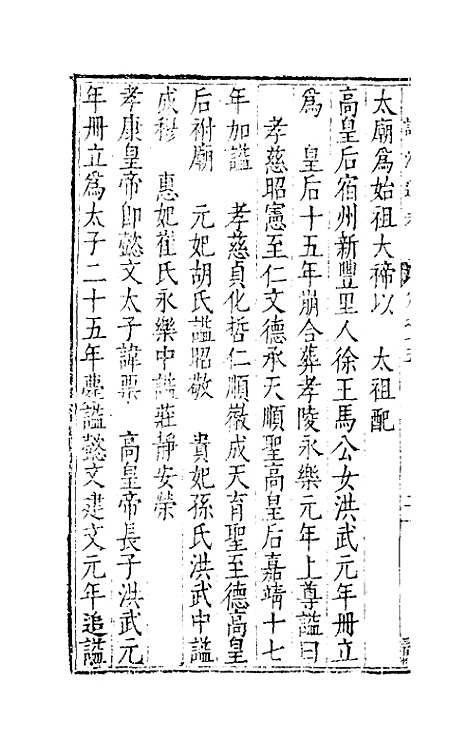 太廟爲始祖大禘以　太祖配
高皇后宿州新豐里人徐王馬公女洪武元年冊立
爲　皇后十五年崩合葬孝陵永樂元年上尊謚曰
孝慈昭憲至仁文德承天順聖高皇后嘉靖十七
年加謚　孝慈貞化哲仁順徽成天育聖至德高皇
后祔廟　元妃胡氏謚昭敬　貴妃孫氏洪武中謚
成穆　惠妃崔氏永樂中謚莊靜安榮
孝康皇帝卽懿文太子諱標　高皇帝長子洪武元
年冊立爲太子二十五年薨謚懿文建文元年追謚